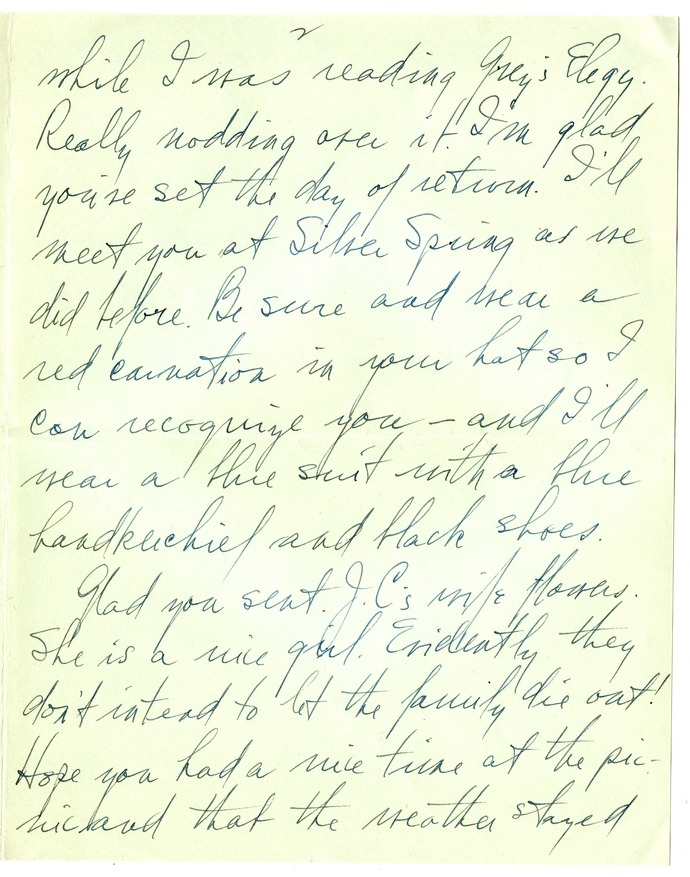 2
while I was reading Grey's Elegy.
Really nodding over it! I'm glad
you've set the day of return. I'll
meet you at Silver Spring as we
did before. Be sure and wear a
red carnation in your hat so I
can recognize you - and I'll
wear a blue suit with a blue
handkerchief and black shoes.
Glad you sent J.C's wife flowers.
She is a nice girl. Evidently they
don't intend to let the family die out!
Hope you had a nice time at the pic-
nic and that the weather stayed